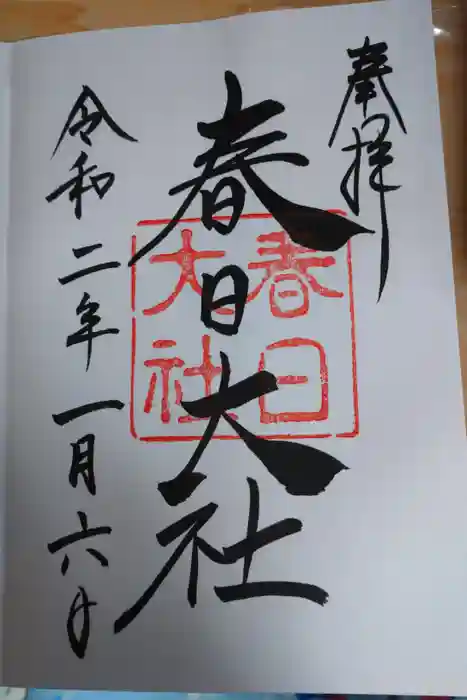 奉拝
春日大社
春日
大社
令和二年一月六日